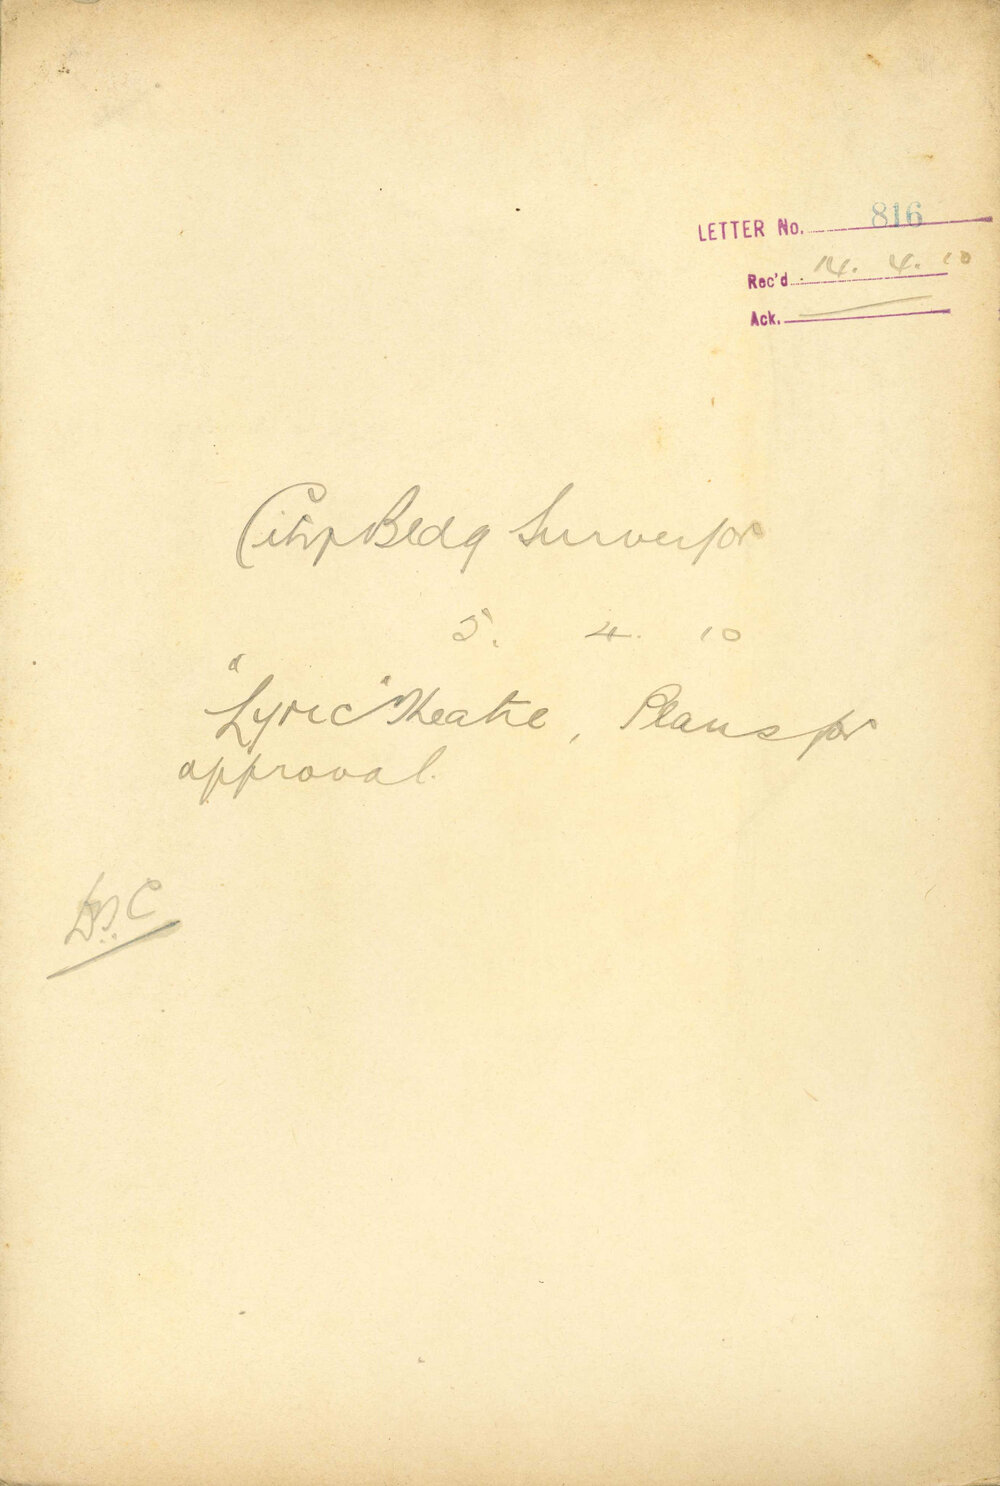 LETTER No. 816
Rec'd 14. 4. 10
Ack.
City Bldg Surveyor
5. 4. 10
"Lyric" Theatre, Plans for
approval.